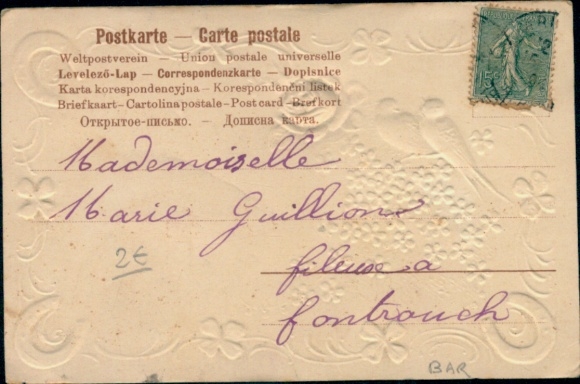 Postkarte — Carte postale
Weltpostverein — Union postale universelle
Levelező-Lap — Correspondenzkarte — Dopisnice
Karta korespondencyjna — Korespondenční lístek
Briefkaart — Cartolina postale — Post card — Brefkort
Открытое-письмо. — Дописна карта.
Mademoiselle
Marie Guillion
fileuse a
fontrouch
2€
BAR
15c